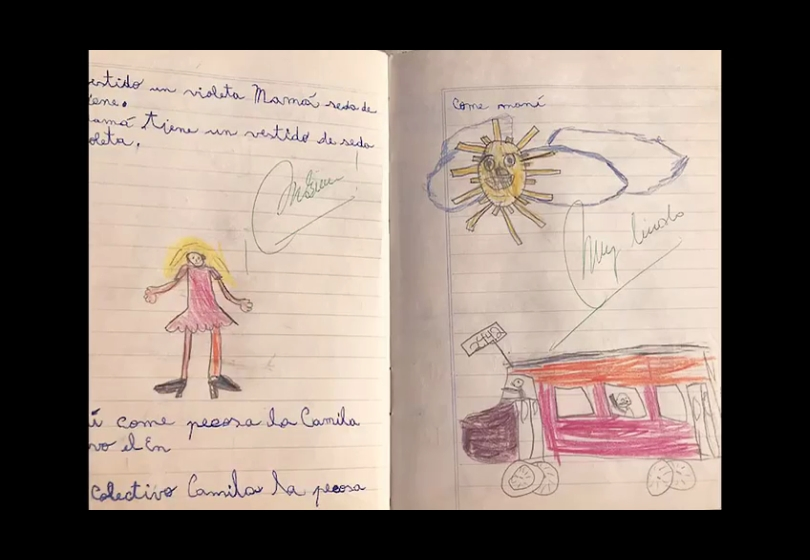 estido un violeta Mamá seda de
iene.
amá tiene un vestido de seda
oleta.
í come pecosa la Camila
vo el En
colectivo Camila la pecosa
come maní
Muy lindo
2442